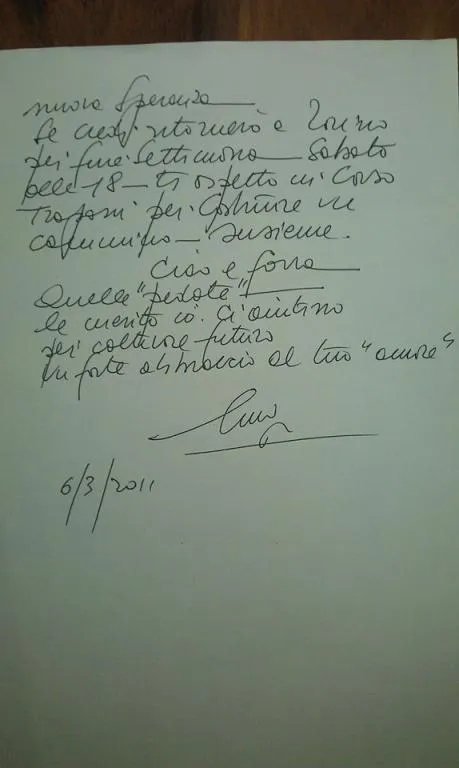 nuova Speranza
Se credi ritornerò a Torino
per fine Settimana - Sabato
alle 18 - ti aspetto in Corso
Trapani per Costruire un
cammino - Insieme.
Ciao e forza
Quelle "pedate"
le merito io. Ci aiutano
per coltivare futuro
Un forte abbraccio al tuo "amore"
6/3/2011